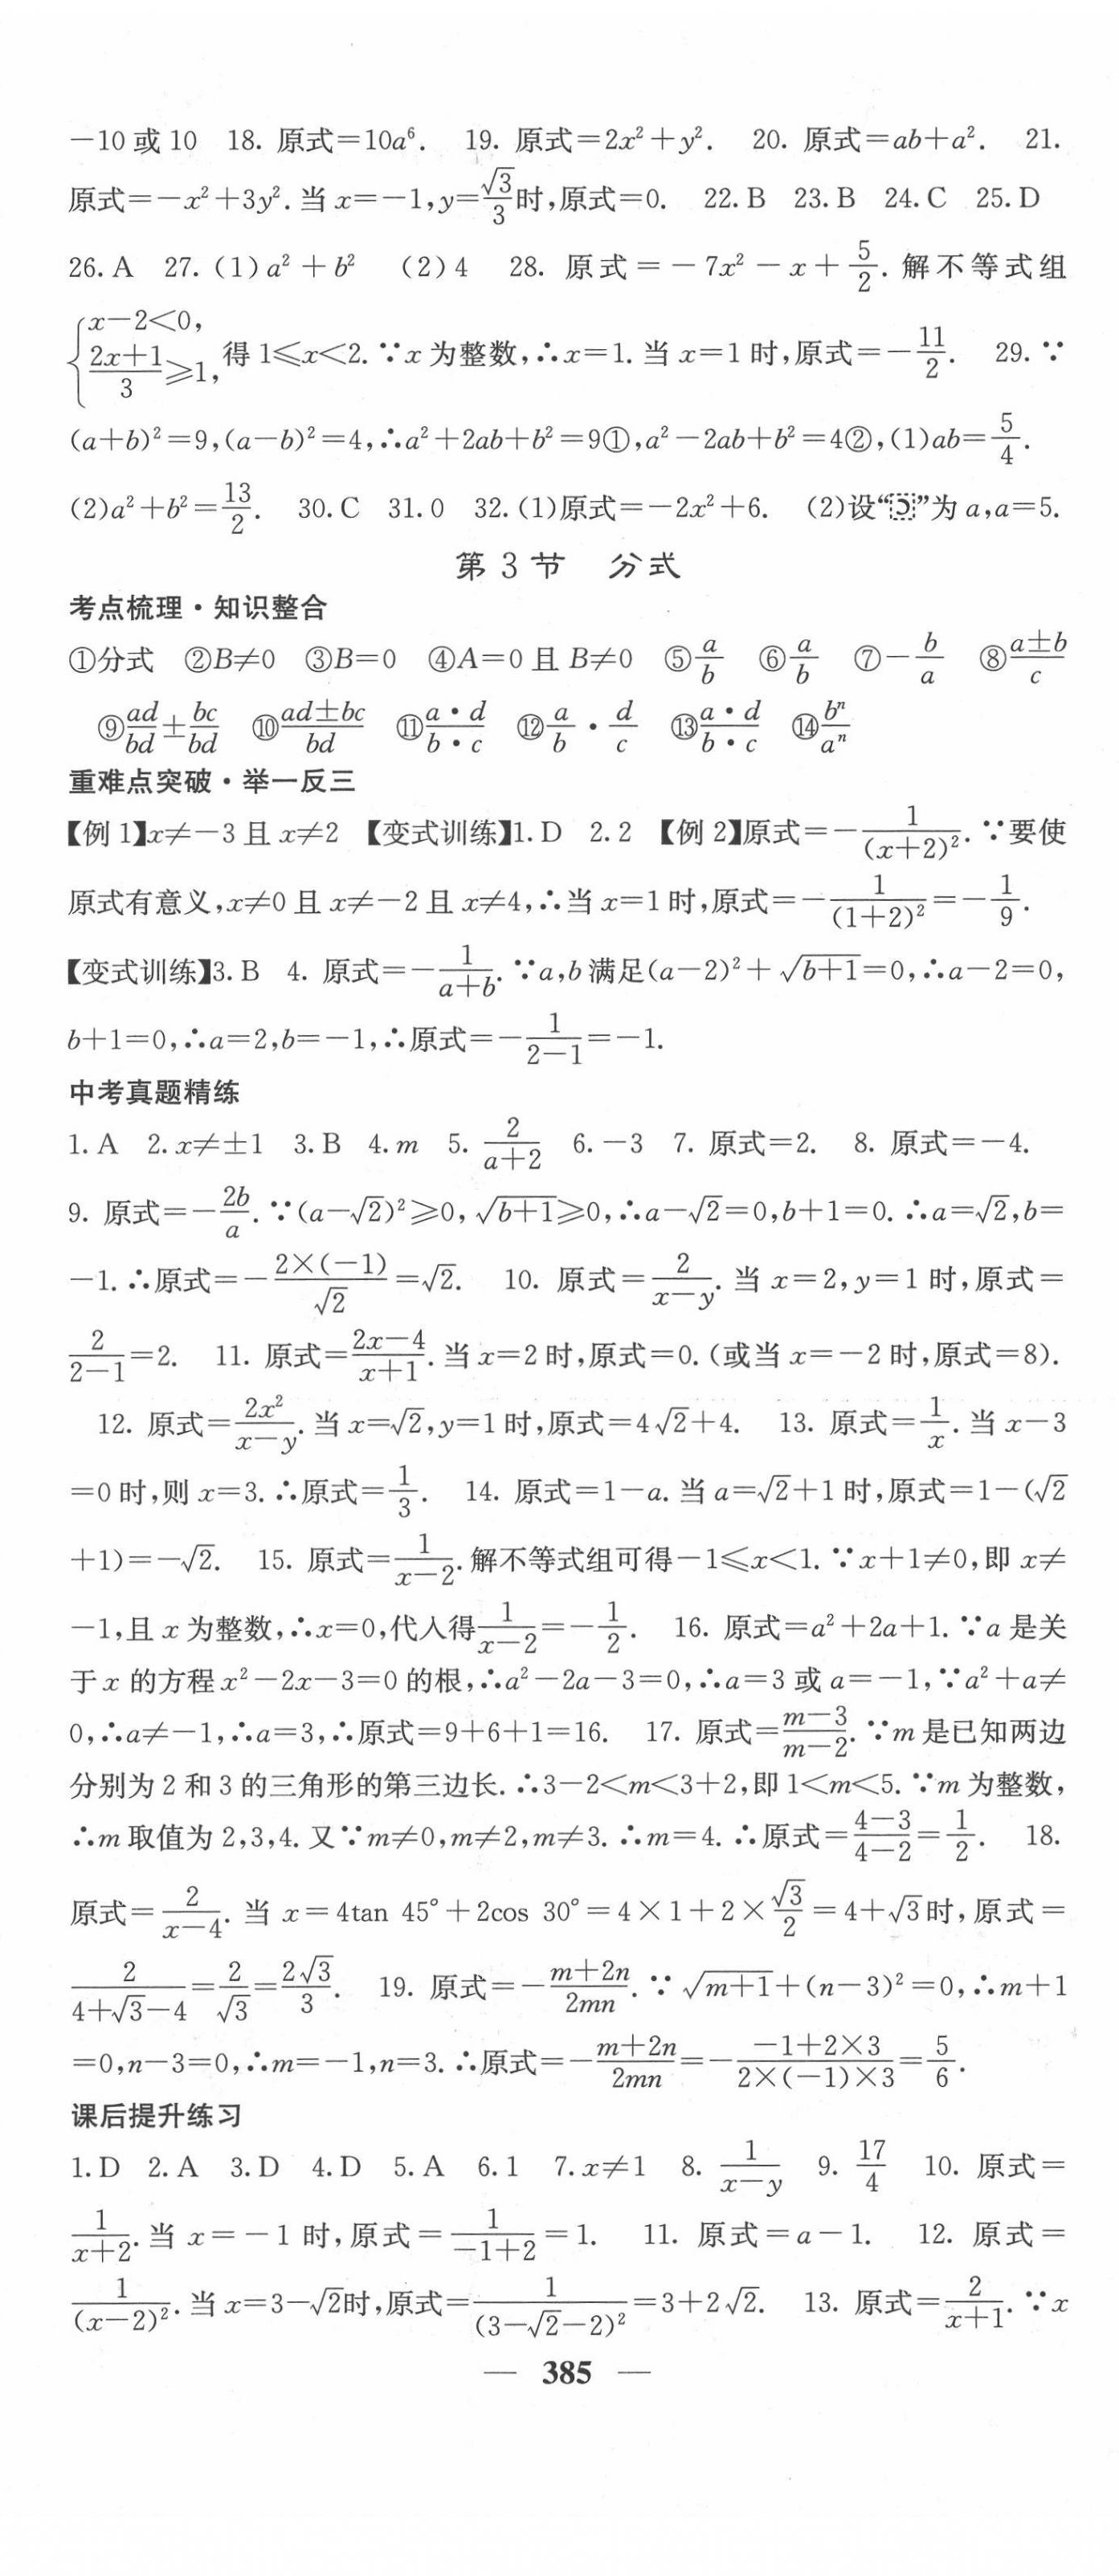 －10 或 10　18. 原式＝10a⁶.　19. 原式＝2x²＋y².　20. 原式＝ab＋a².　21.
原式＝－x²＋3y². 当 x＝－1,y＝√3/3时,原式＝0.　22. B　23. B　24. C　25. D
26. A　27. (1)a²＋b²　(2)4　28. 原式＝－7x²－x＋5/2. 解不等式组
{x－2<0, (2x＋1)/3≥1, 得 1≤x<2. ∵x 为整数,∴x＝1. 当 x＝1 时,原式＝－11/2.　29. ∵
(a＋b)²＝9,(a－b)²＝4,∴a²＋2ab＋b²＝9①,a²－2ab＋b²＝4②,(1)ab＝5/4.
(2)a²＋b²＝13/2.　30. C　31. 0　32. (1)原式＝－2x²＋6.　(2)设“”为 a,a＝5.
第 3 节　分式
考点梳理·知识整合
①分式　②B≠0　③B＝0　④A＝0 且 B≠0　⑤a/b　⑥a/b　⑦－b/a　⑧(a±b)/c
⑨ad/bd±bc/bd　⑩(ad±bc)/bd　⑪(a·d)/(b·c)　⑫a/b·d/c　⑬(a·d)/(b·c)　⑭bⁿ/aⁿ
重难点突破·举一反三
【例 1】x≠－3 且 x≠2　【变式训练】1. D　2. 2　【例 2】原式＝－1/(x＋2)². ∵要使
原式有意义,x≠0 且 x≠－2 且 x≠4,∴当 x＝1 时,原式＝－1/(1＋2)²＝－1/9.
【变式训练】3. B　4. 原式＝－1/(a＋b). ∵a,b 满足(a－2)²＋√(b＋1)＝0,∴a－2＝0,
b＋1＝0,∴a＝2,b＝－1,∴原式＝－1/(2－1)＝－1.
中考真题精练
1. A　2. x≠±1　3. B　4. m　5. 2/(a＋2)　6. －3　7. 原式＝2.　8. 原式＝－4.
9. 原式＝－2b/a. ∵(a－√2)²≥0,√(b＋1)≥0,∴a－√2＝0,b＋1＝0. ∴a＝√2,b＝
－1. ∴原式＝－(2×(－1))/√2＝√2.　10. 原式＝2/(x－y). 当 x＝2,y＝1 时,原式＝
2/(2－1)＝2.　11. 原式＝(2x－4)/(x＋1). 当 x＝2 时,原式＝0. (或当 x＝－2 时,原式＝8).
12. 原式＝2x²/(x－y). 当 x＝√2,y＝1 时,原式＝4√2＋4.　13. 原式＝1/x. 当 x－3
＝0 时,则 x＝3. ∴原式＝1/3.　14. 原式＝1－a. 当 a＝√2＋1 时,原式＝1－(√2
＋1)＝－√2.　15. 原式＝1/(x－2). 解不等式组可得－1≤x<1. ∵x＋1≠0,即 x≠
－1,且 x 为整数,∴x＝0,代入得1/(x－2)＝－1/2.　16. 原式＝a²＋2a＋1. ∵a 是关
于 x 的方程 x²－2x－3＝0 的根,∴a²－2a－3＝0,∴a＝3 或 a＝－1,∵a²＋a≠
0,∴a≠－1,∴a＝3,∴原式＝9＋6＋1＝16.　17. 原式＝(m－3)/(m－2). ∵m 是已知两边
分别为 2 和 3 的三角形的第三边长. ∴3－2<m<3＋2,即 1<m<5. ∵m 为整数,
∴m 取值为 2,3,4. 又∵m≠0,m≠2,m≠3. ∴m＝4. ∴原式＝(4－3)/(4－2)＝1/2.　18.
原式＝2/(x－4). 当 x＝4tan 45°＋2cos 30°＝4×1＋2×√3/2＝4＋√3时,原式＝
2/(4＋√3－4)＝2/√3＝2√3/3.　19. 原式＝－(m＋2n)/2mn. ∵√(m＋1)＋(n－3)²＝0,∴m＋1
＝0,n－3＝0,∴m＝－1,n＝3. ∴原式＝－(m＋2n)/2mn＝－(－1＋2×3)/(2×(－1)×3)＝5/6.
课后提升练习
1. D　2. A　3. D　4. D　5. A　6. 1　7. x≠1　8. 1/(x－y)　9. 17/4　10. 原式＝
1/(x＋2). 当 x＝－1 时,原式＝1/(－1＋2)＝1.　11. 原式＝a－1.　12. 原式＝
1/(x－2)². 当 x＝3－√2时,原式＝1/(3－√2－2)²＝3＋2√2.　13. 原式＝2/(x＋1). ∵x
— 385 —